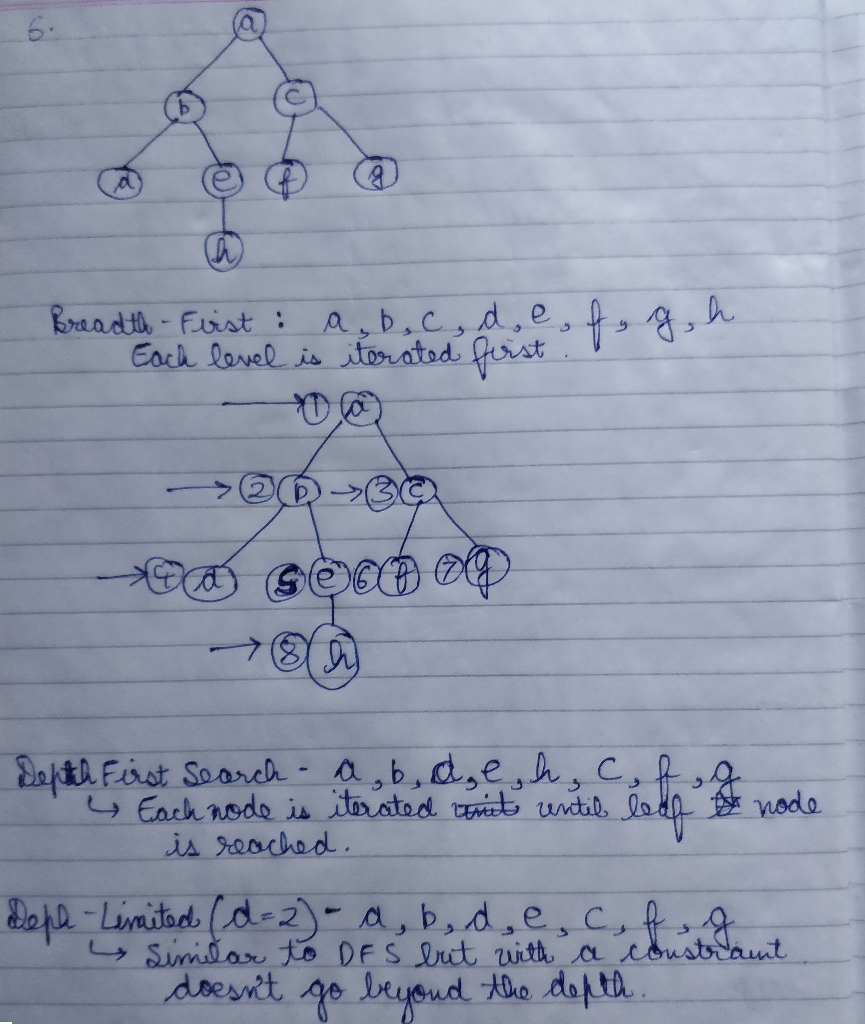 6.
a
b c
d e f g
h
Breadth-First : a, b, c, d, e, f, g, h
Each level is iterated first.
→ 1 a
→ 2 b → 3 c
→ 4 d 5 e 6 f 7 g
→ 8 h
Depth First Search - a, b, d, e, h, c, f, g
↳ Each node is iterated until leaf node
is reached.
Deph-Limited (d=2) - a, b, d, e, c, f, g
↳ Similar to DFS but with a constraint
doesn't go beyond the depth.